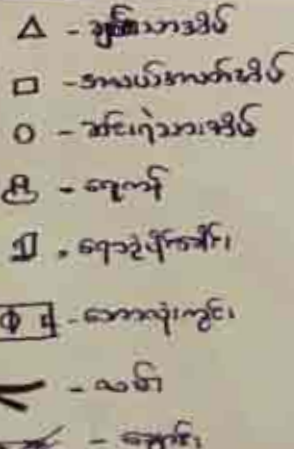 ချမ်းသာအိမ်
အလယ်အလတ်အိမ်
ဆင်းရဲသားအိမ်
ရေကန်
ဘောလုံးကွင်း
လမ်း